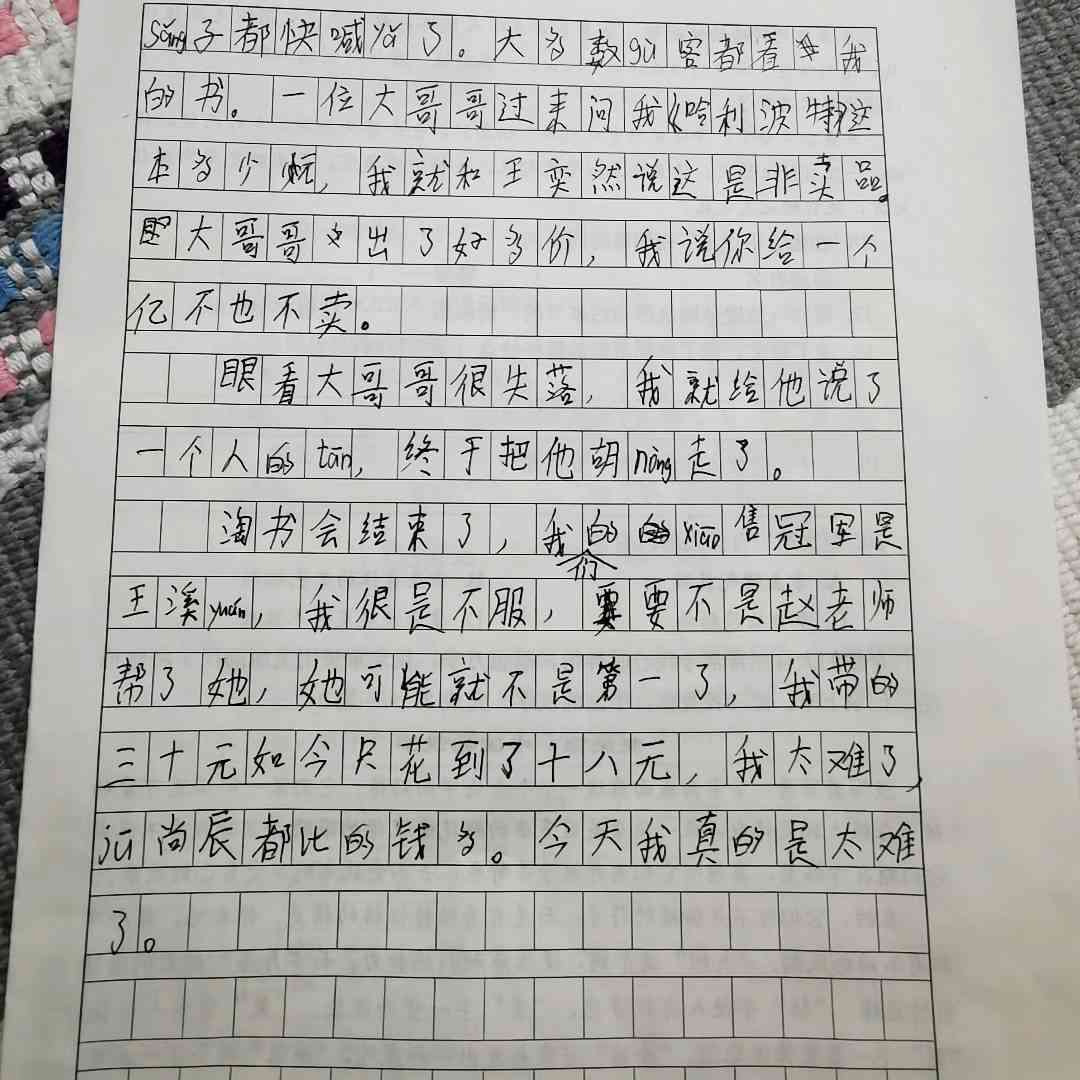 sǎng子都快喊yǎ了。大多数gù客都看我
的书。一位大哥哥过来问我《哈利波特》这
本多少一瓶,我就和王奕然说这是非卖品。
大哥哥又出了好多价,我说你给一个
亿不也不卖。
眼看大哥哥很失落,我就给他说了
一个人的tān,终于把他胡nòng走了。
淘书会结束了,我们的xiāo售冠军是
王溪yuán,我很是不服,要不是赵老师
帮了她,她可能就不是第一了,我带的
三十元如今只花到了十八元,我太难了,
jū尚辰都比的钱多。今天我真的是太难
了。